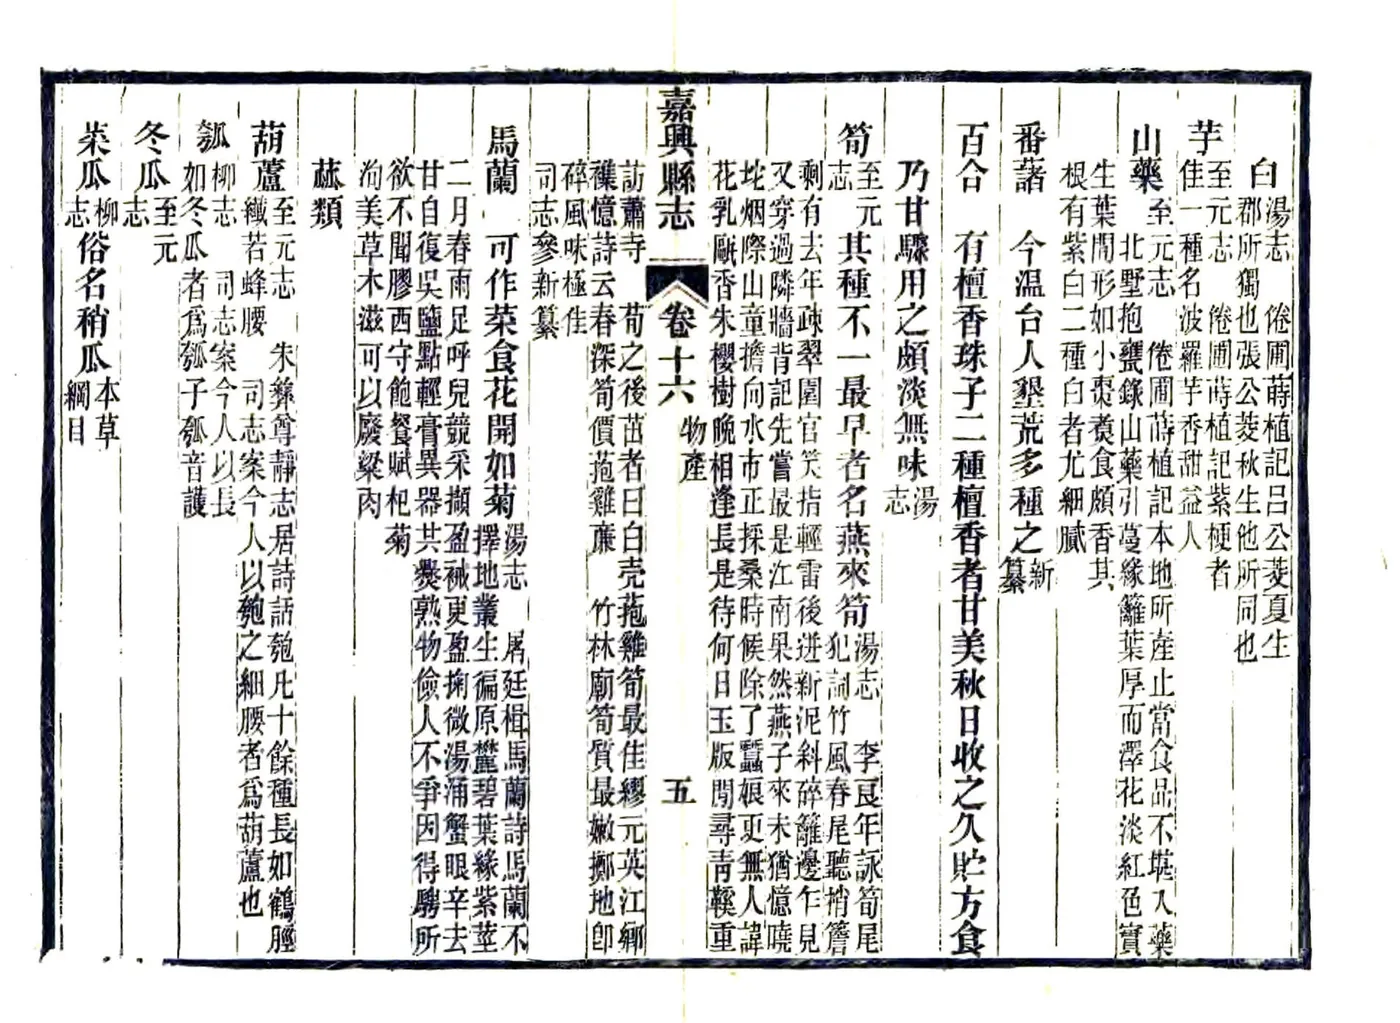 白 湯志 倦圃蒔植記呂公菱夏生
郡所獨也張公菱秋生他所同也
芋 至元志 倦圃蒔植記紫梗者
佳一種名波羅芋香甜益人
山藥 至元志 倦圃蒔植記本地所產止當食品不堪入藥
北墅抱甕錄山藥引蔓緣籬葉厚而澤花淡紅色實
生葉間形如小棗煑食頗香其
根有紫白二種白者尤細膩
番藷 今温台人墾荒多種之 新纂
百合 有檀香珠子二種檀香者甘美秋日收之久貯方食
乃甘驟用之頗淡無味 湯志
筍 至元志 其種不一最早者名燕來筍 湯志 李良年詠筍尾
犯詞竹風春尾聽梢簷
剩有去年疎翠圍官笑指輕雷後迸新泥斜碎籬邊乍見
又穿過隣牆背記先嘗最是江南果然燕子來未猶憶曉
坨烟際山童擔向水市正採桑時候除了蠶娘更無人諱
花乳甌香朱櫻樹晚相逢長是待何日玉版閒尋青鞵重
嘉興縣志 卷十六 物產 五
訪蕭寺 荀之後茁者曰白壳䓟雞筍最佳繆元英江鄉
憶詩云春深筍價䓟雞廉 竹林廟筍質最嫩擲地卽
碎風味極佳
司志參新纂
馬蘭 可作菜食花開如菊 湯志 屠廷楫馬蘭詩馬蘭不
擇地叢生徧原麓碧葉緣紫莖
二月春雨足呼兒競采擷盈襭更盈掬微湯涌蟹眼辛去
甘自復吳鹽點輕膏異器共爨熟物儉人不爭因得騁所
欲不聞膠西守飽餐賦杞菊
洵美草木滋可以廢粱肉
蓏類
葫蘆 至元志 朱彝尊靜志居詩話匏凡十餘種長如鶴脛
纖若蜂腰 司志案今人以匏之細腰者爲葫蘆也
瓠 柳志 司志案今人以長
如冬瓜者爲瓠子瓠音護
冬瓜 至元志
菜瓜 柳志 俗名稍瓜 本草綱目